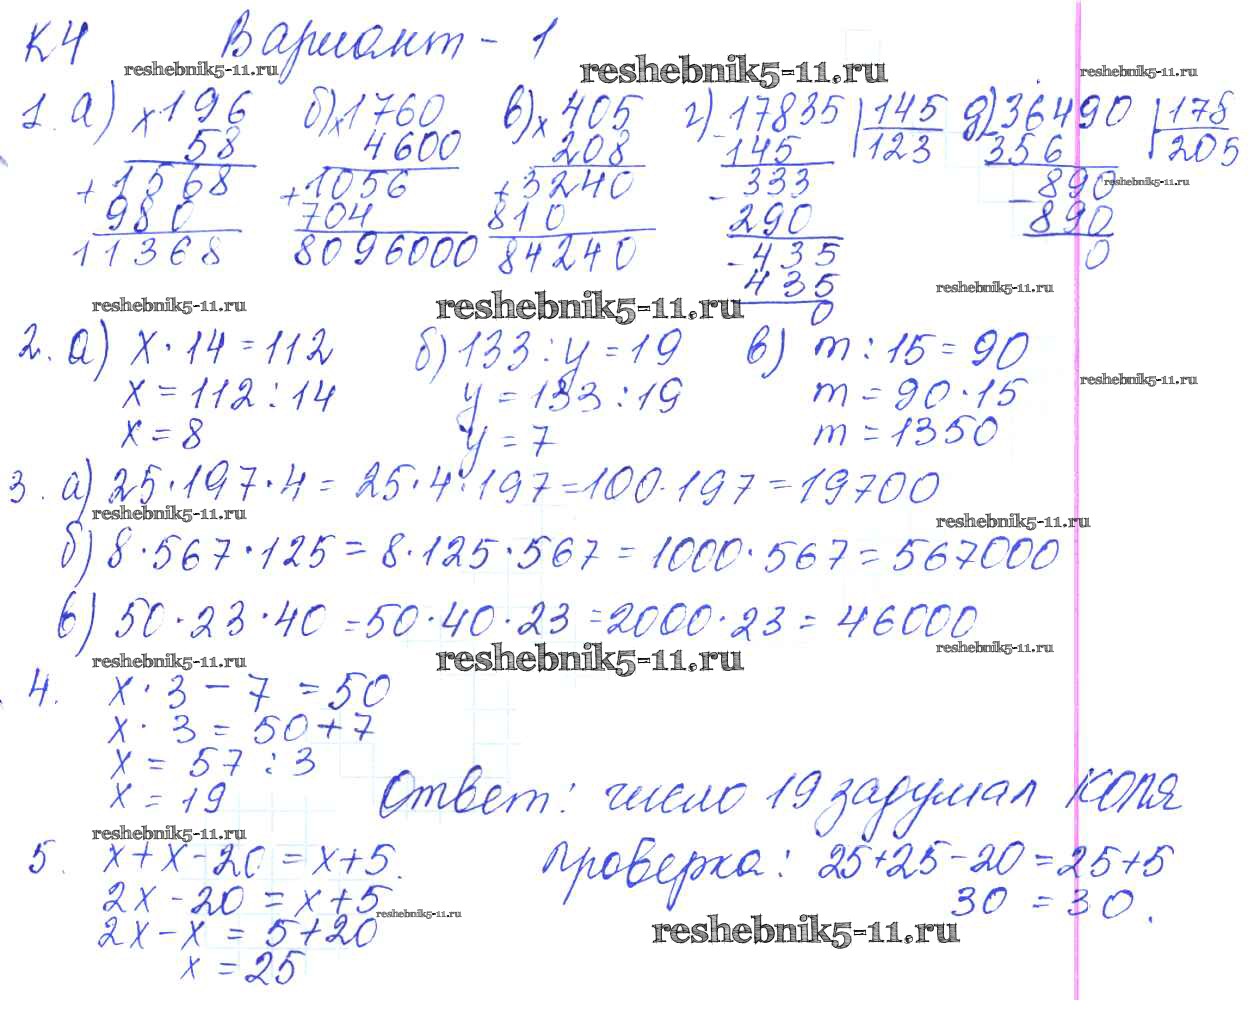 К4 Вариант - 1
reshebnik5-11.ru reshebnik5-11.ru reshebnik5-11.ru
1. а) х 196 б) х 1760 в) х 405 г) 17835 | 145 д) 36490 | 178
58 4600 208 - 145 123 - 356 205
+ 1568 + 1056 + 3240 - 333 - 890
reshebnik5-11.ru
980 704 810 290 890
11368 8096000 84240 - 435 0
435
reshebnik5-11.ru reshebnik5-11.ru reshebnik5-11.ru
0
2. а) х · 14 = 112 б) 133 : у = 19 в) m : 15 = 90
х = 112 : 14 у = 133 : 19 m = 90 · 15
reshebnik5-11.ru
х = 8 у = 7 m = 1350
3. а) 25 · 197 · 4 = 25 · 4 · 197 = 100 · 197 = 19700
reshebnik5-11.ru reshebnik5-11.ru
б) 8 · 567 · 125 = 8 · 125 · 567 = 1000 · 567 = 567000
в) 50 · 23 · 40 = 50 · 40 · 23 = 2000 · 23 = 46000
reshebnik5-11.ru reshebnik5-11.ru reshebnik5-11.ru
4. х · 3 - 7 = 50
х · 3 = 50 + 7
х = 57 : 3
х = 19 Ответ: число 19 задумал Коля
reshebnik5-11.ru
5. х + х - 20 = х + 5. Проверка: 25 + 25 - 20 = 25 + 5
2х - 20 = х + 5 30 = 30.
reshebnik5-11.ru reshebnik5-11.ru
2х - х = 5 + 20
х = 25